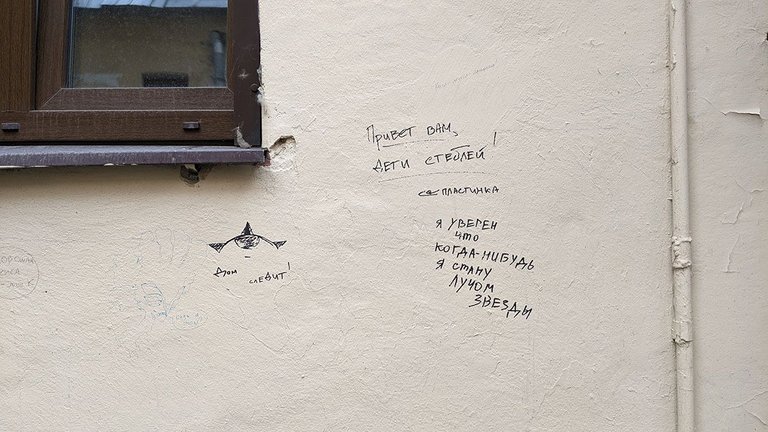 Привет вам,
дети стеблей!
пластинка
я уверен
что
когда-нибудь
я стану
лучом
звезды
дом следит!